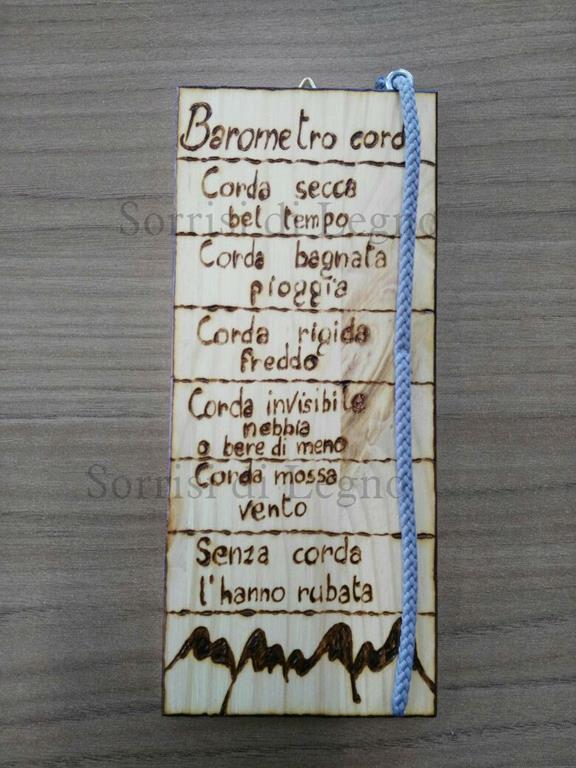 Barometro cord
Corda secca
bel tempo
Sorrisi di Legno
Corda bagnata
pioggia
Corda rigida
freddo
Corda invisibile
nebbia
o bere di meno
Corda mossa
Sorrisi di Legno
vento
Senza corda
l'hanno rubata